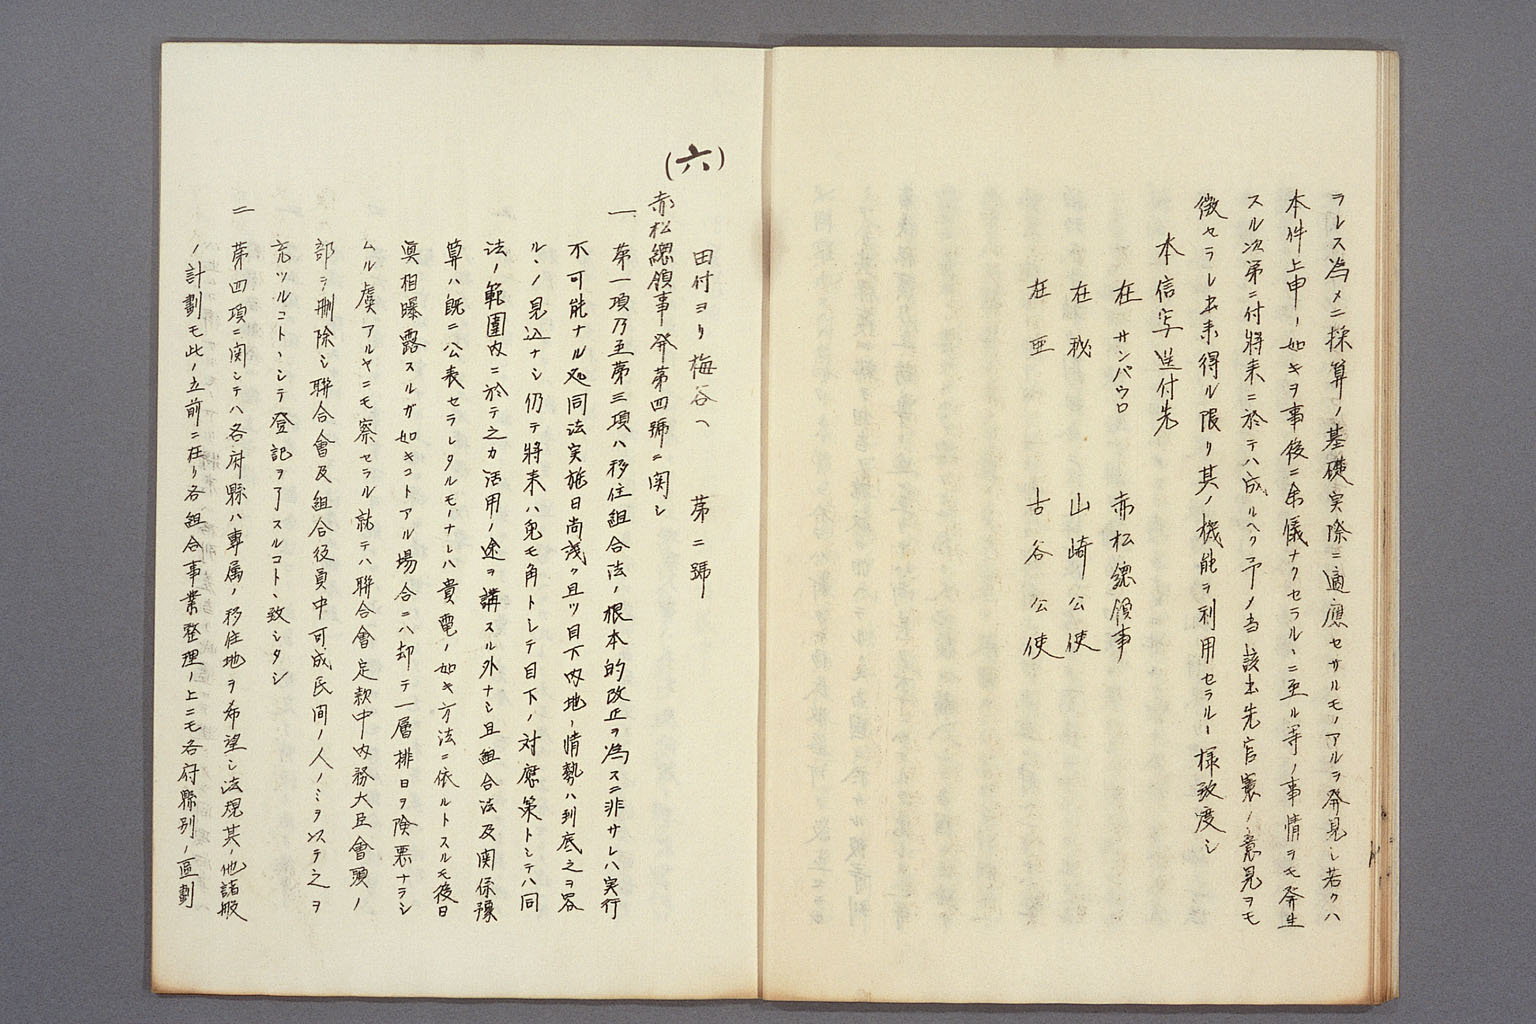 ラレス為メニ採算ノ基礎実際ニ適應セサルモノアルヲ発見シ若クハ
本件上申ノ如キヲ事後ニ余儀ナクセラルヽニ至ル等ノ事情ヲモ発生
スル次第ニ付將来ニ於テハ成ルヘク予メ当該出先官憲ノ意見ヲモ
徴セラレ出来得ル限リ其ノ機能ヲ利用セラルヽ様致度シ
本信写送付先
在サンパウロ 赤松總領事
在秘 山崎公使
在亜 古谷公使
(六)
田付ヨリ梅谷へ 第二號
赤松總領事発第四號ニ関シ
一 第一項乃至第三項ハ移住組合法ノ根本的改正ヲ為スニ非サレハ実行
不可能ナル処同法実施日尚浅ク且ツ目下内地ノ情勢ハ到底之ヲ容
ルヽノ見込ナシ仍テ將来ハ兎モ角トシテ目下ノ対應策トシテハ同
法ノ範圍内ニ於テ之カ活用ノ途ヲ講スル外ナシ且組合法及関係豫
算ハ既ニ公表セラレタルモノナレハ貴電ノ如キ方法ニ依ルトスルモ後日
眞相曝露スルガ如キコトアル場合ニハ却テ一層排日ヲ険悪ナラシ
ムル虞アルヤニモ察セラル就テハ聯合會定款中内務大臣會頭ノ
部ヲ削除シ聯合會及組合役員中可成民间ノ人ノミヲ以テ之ヲ
充ツルコトヽシテ登記ヲ了スルコトヽ致シタシ
二 第四項ニ関シテハ各府縣ハ專属ノ移住地ヲ希望シ法規其ノ他諸般
ノ計劃モ此ノ立前ニ在リ各組合事業整理ノ上ニモ各府縣別ノ區劃